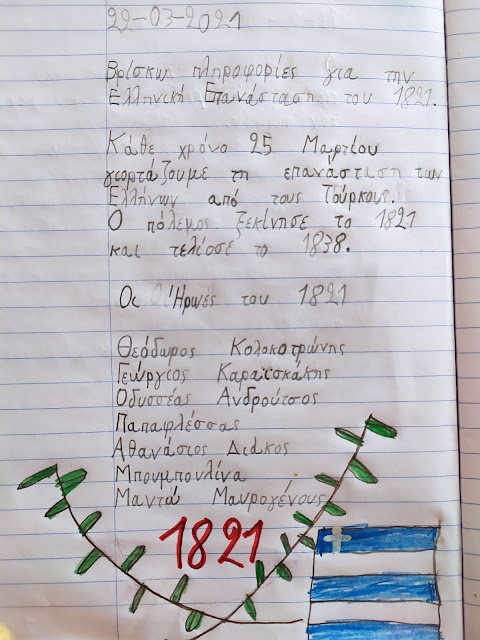 22-03-2021
Βρίσκω πληροφορίες για την
Ελληνική Επανάσταση του 1821.
Κάθε χρόνο 25 Μαρτίου
γιορτάζουμε τη επανάσταση των
Ελλήνων από τους Τούρκους.
Ο πόλεμος ξεκίνησε το 1821
και τελιόσε το 1838.
Οι Ήρωές του 1821
Θεόδωρος Κολοκοτρώνης
Γεώργιος Καραϊσκάκης
Οδυσσέας Ανδρούτσος
Παπαφλέσσας
Αθανάσιος Διάκος
Μπουμπουλίνα
Μαντώ Μαυρογένους
1821